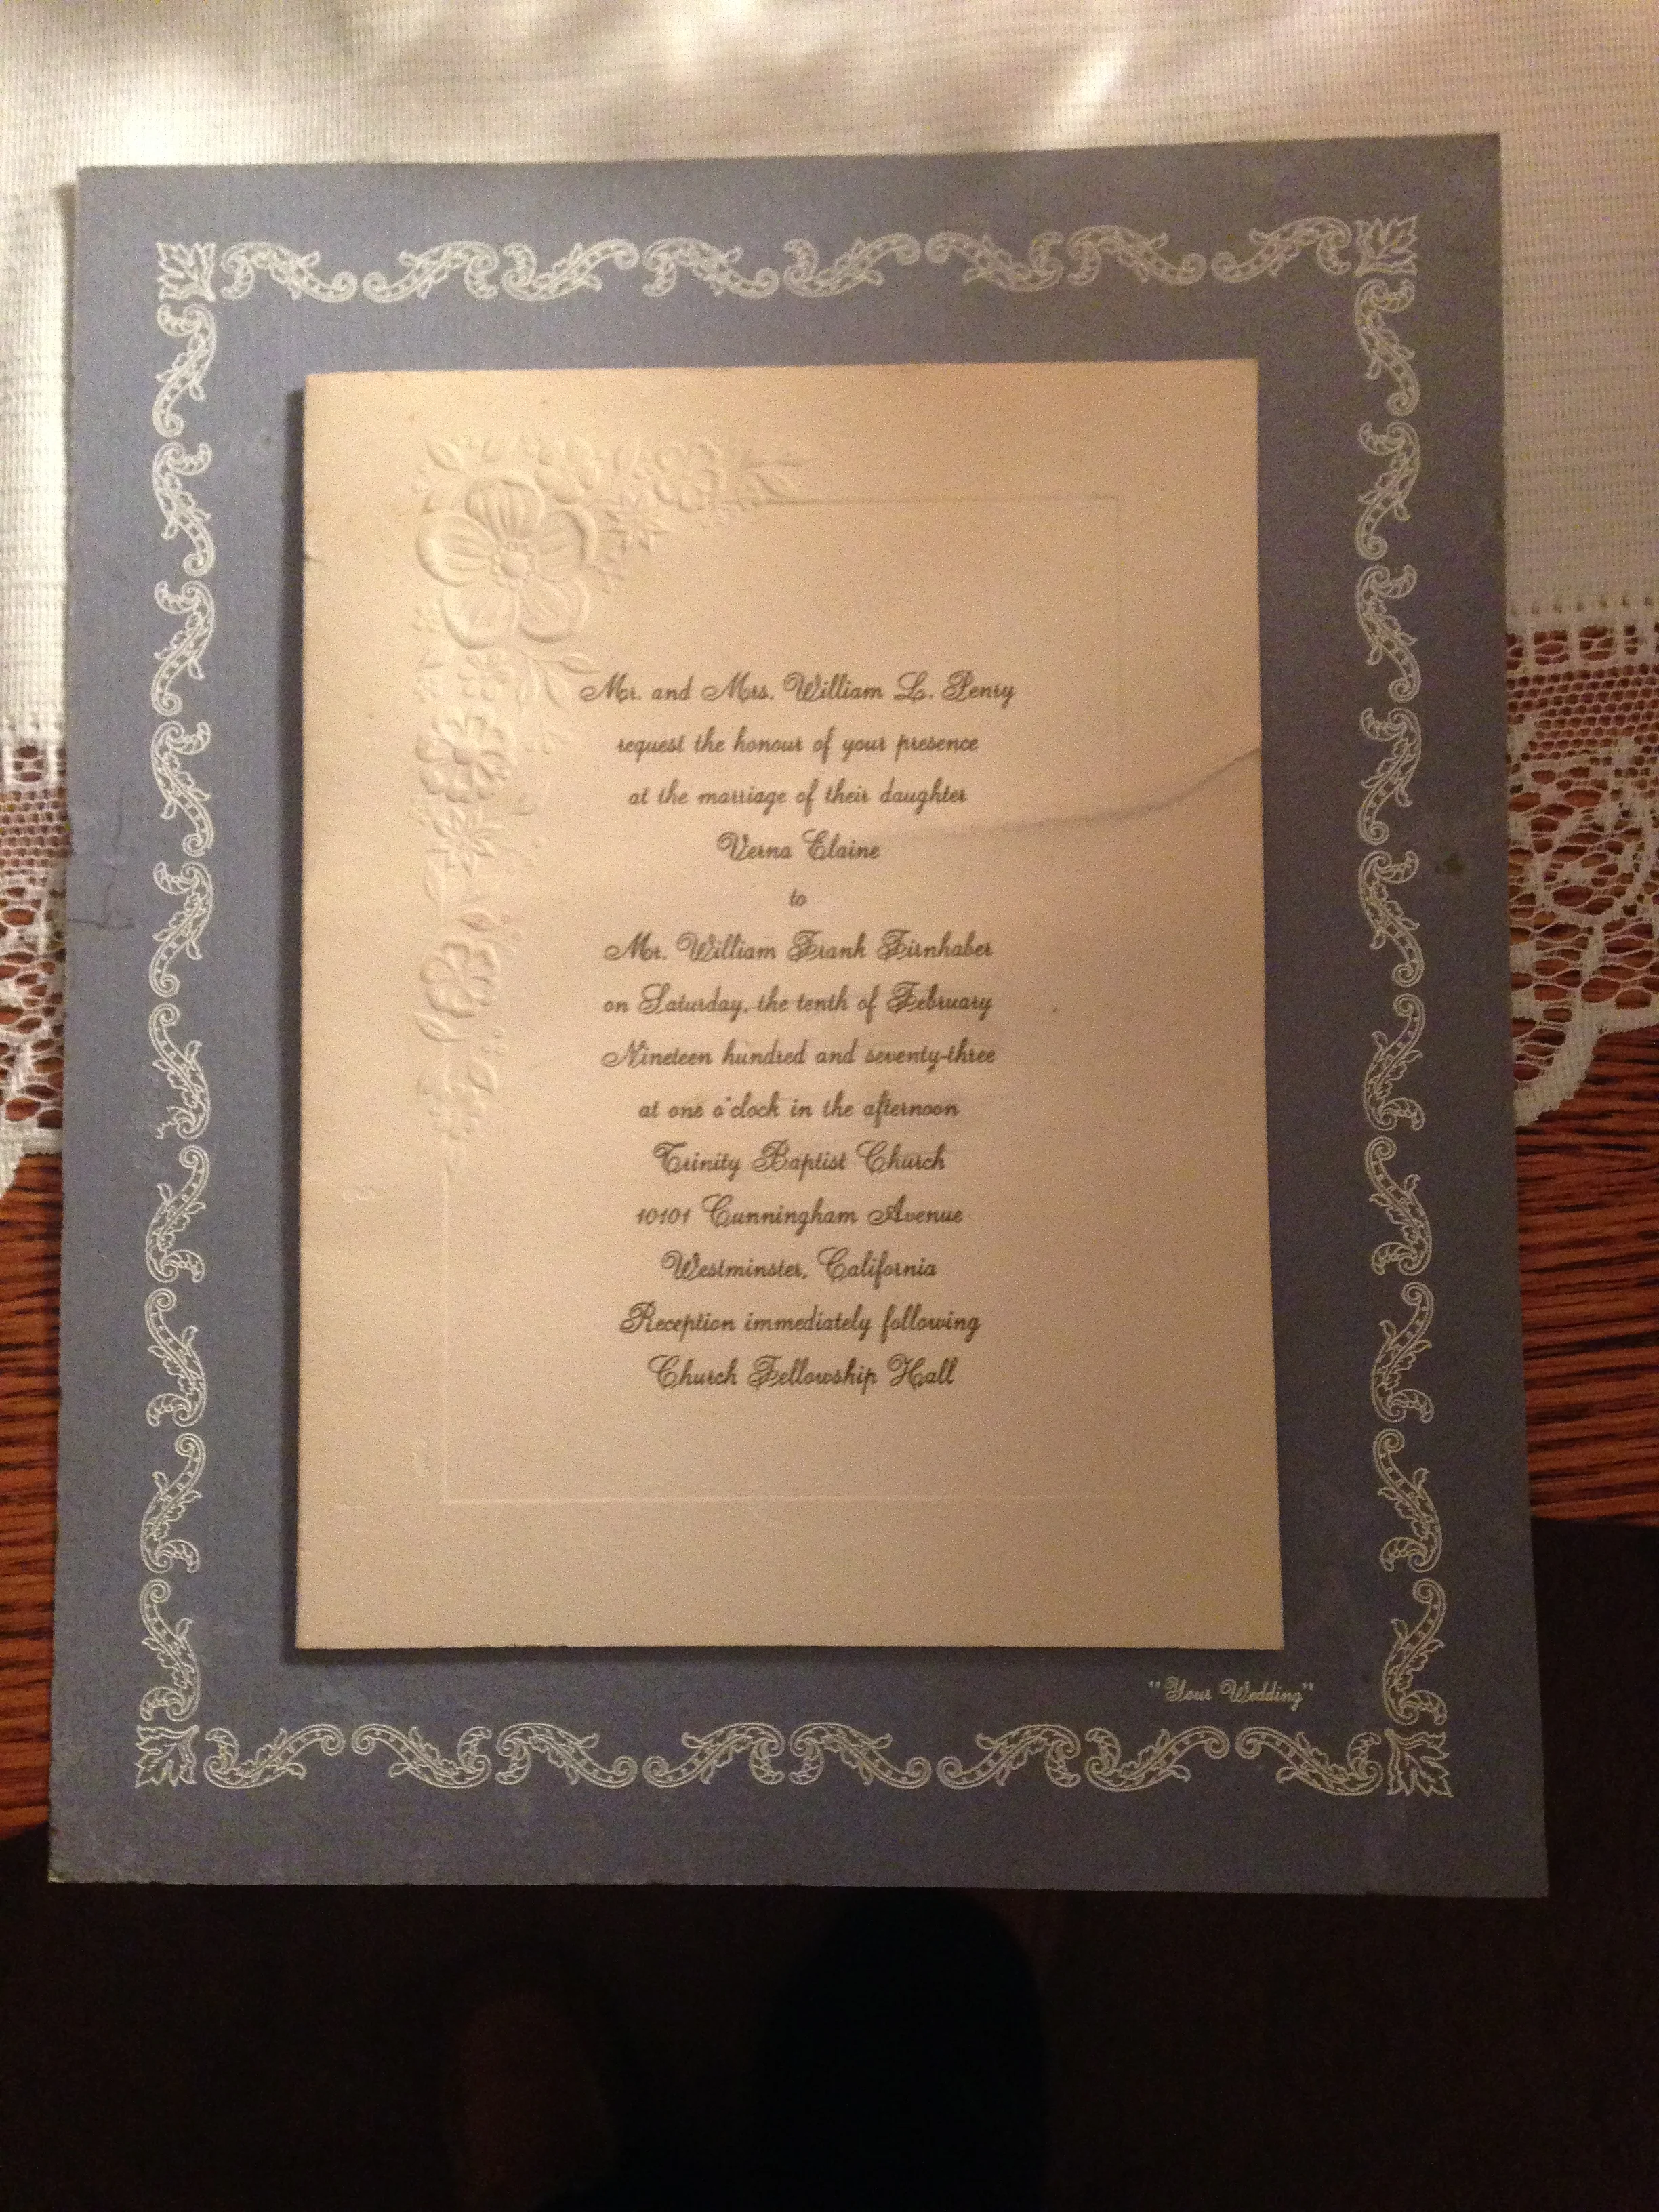 Mr. and Mrs. William L. Penry
request the honour of your presence
at the marriage of their daughter
Verna Elaine
to
Mr. William Frank Firnhaber
on Saturday, the tenth of February
Nineteen hundred and seventy-three
at one o'clock in the afternoon
Trinity Baptist Church
10101 Cunningham Avenue
Westminster, California
Reception immediately following
Church Fellowship Hall
"Your Wedding"